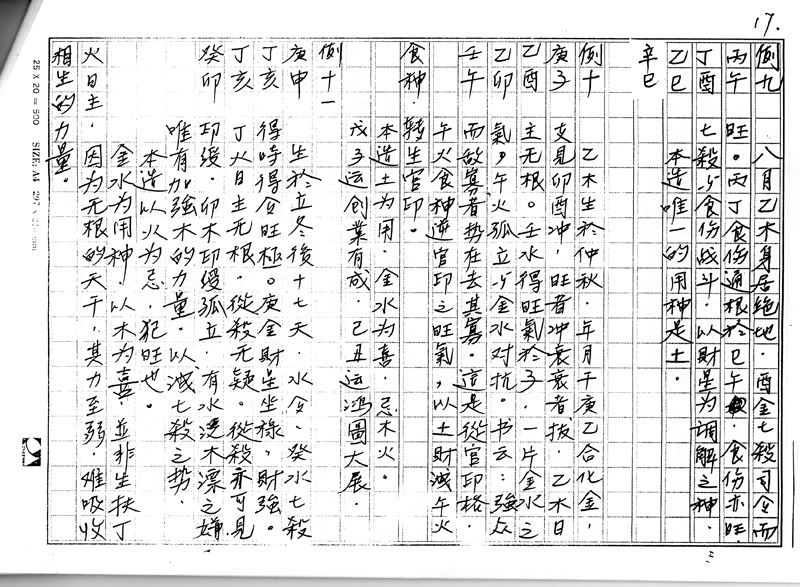 17.
例九 八月乙木身居絶地．酉金七殺司令而
丙午 旺。丙丁食伤通根於巳午．食伤亦旺
丁酉 七殺与食伤战斗．以財星为调解之神．
乙巳 本造唯一的用神是土．
辛巳
例十 乙木生於仲秋．年月干庚乙合化金，
庚子 支見卯酉冲，旺者冲衰衰者拔．乙木日
乙酉 主无根。壬水得旺氣於子．一片金水之
乙卯 氣。午火孤立与金水对抗。书云：強众
壬午 而敵寡者势在去其寡。這是從官印格．
午火食神逆官印之旺氣，以土財洩午火
食神．转生官印。
本造土为用．金水为喜．忌木火．
戊子运创業有成．己丑运鸿圖大展．
例十一
庚申 生於立冬後十七天．水令．癸水七殺
丁亥 得時得令旺極。庚金財星坐祿，財強。
丁亥 丁火日主无根，從殺无疑。從殺亦可見
癸卯 印绶．卯木印绶孤立．有水泛木漂之嫌
唯有加強木的力量．以洩七殺之势．
本造以火为忌，犯旺也。
金水为用神．以木为喜．並非生扶丁
火日主．因为无根的天干，其力至弱．难吸收
相生的力量。
25 X 20 = 500 SIZE: A4